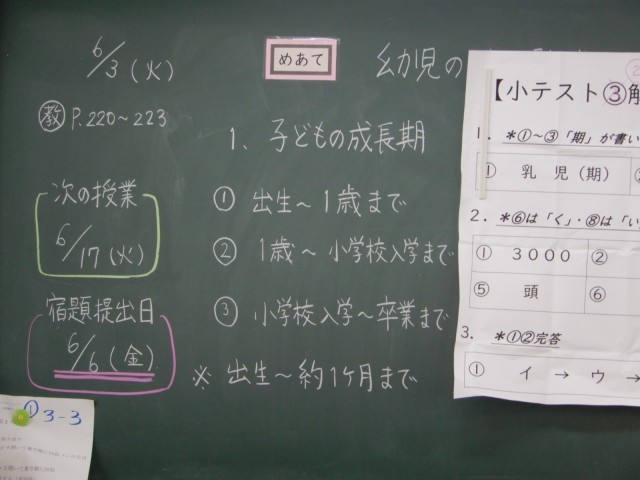 6/3（火）
めあて
幼児の
㊙教 P.220～223
1、子どもの成長期
次の授業
6/17（火）
① 出生～1歳まで
② 1歳～小学校入学まで
宿題提出日
6/6（金）
③ 小学校入学～卒業まで
※ 出生～約1ヶ月まで
① 3-3
【小テスト③解
1. ＊①～③「期」が書い
① 乳 児（期）
2. ＊⑥は「く」・⑧は「い
① 3000 ②
⑤ 頭 ⑥
3. ＊①②完答
① イ → ウ →